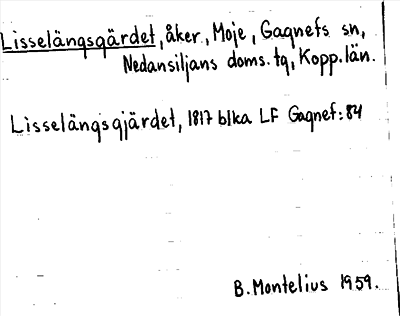 Lisselängsgärdet, åker, Moje, Gagnefs sn,
Nedansiljans doms. tg, Kopp. län.
Lisselängsgjärdet, 1817 blka LF Gagnef: 84
B. Montelius 1959.